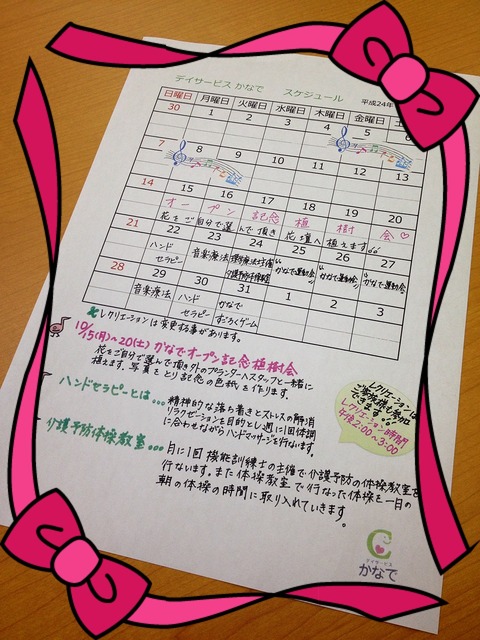 デイサービス かなで スケジュール 平成24年
日曜日 月曜日 火曜日 水曜日 木曜日 金曜日 土
30 1 2 3 4 5 6
7 8 9 10 11 12 13
14 15 16 17 18 19 20
オープン記念植樹会♡
花をご自分で選んで頂き 花壇へ植えます
21 22 23 24 25 26 27
ハンドセラピー 音楽療法 介護予防体操教室 "かなで運動会" "かなで運動会" "かなで運動会"
28 29 30 31 1 2 3
音楽療法 ハンドセラピー かなですごろくゲーム
レクリエーションは変更する事があります。
10/15(月)~20(土) かなでオープン記念植樹会
花をご自分で選んで頂き外のプランターへスタッフと一緒に
植えます。写真をとり記念の色紙を作ります。
ハンドセラピーとは... 精神的な落ち着きとストレスの解消
リラクゼーションを目的とし週に1回体調
に合わせながらハンドマッサージを行ないます。
レクリエーション
ご家族様も参加
できます!!
レクリエーション時間
午後2:00~3:00
介護予防体操教室... 月に1回機能訓練士の主催で介護予防の体操教室を
行ないます。また体操教室で行なった体操を一日の
朝の体操の時間に取り入れていきます。
デイサービス
かなで